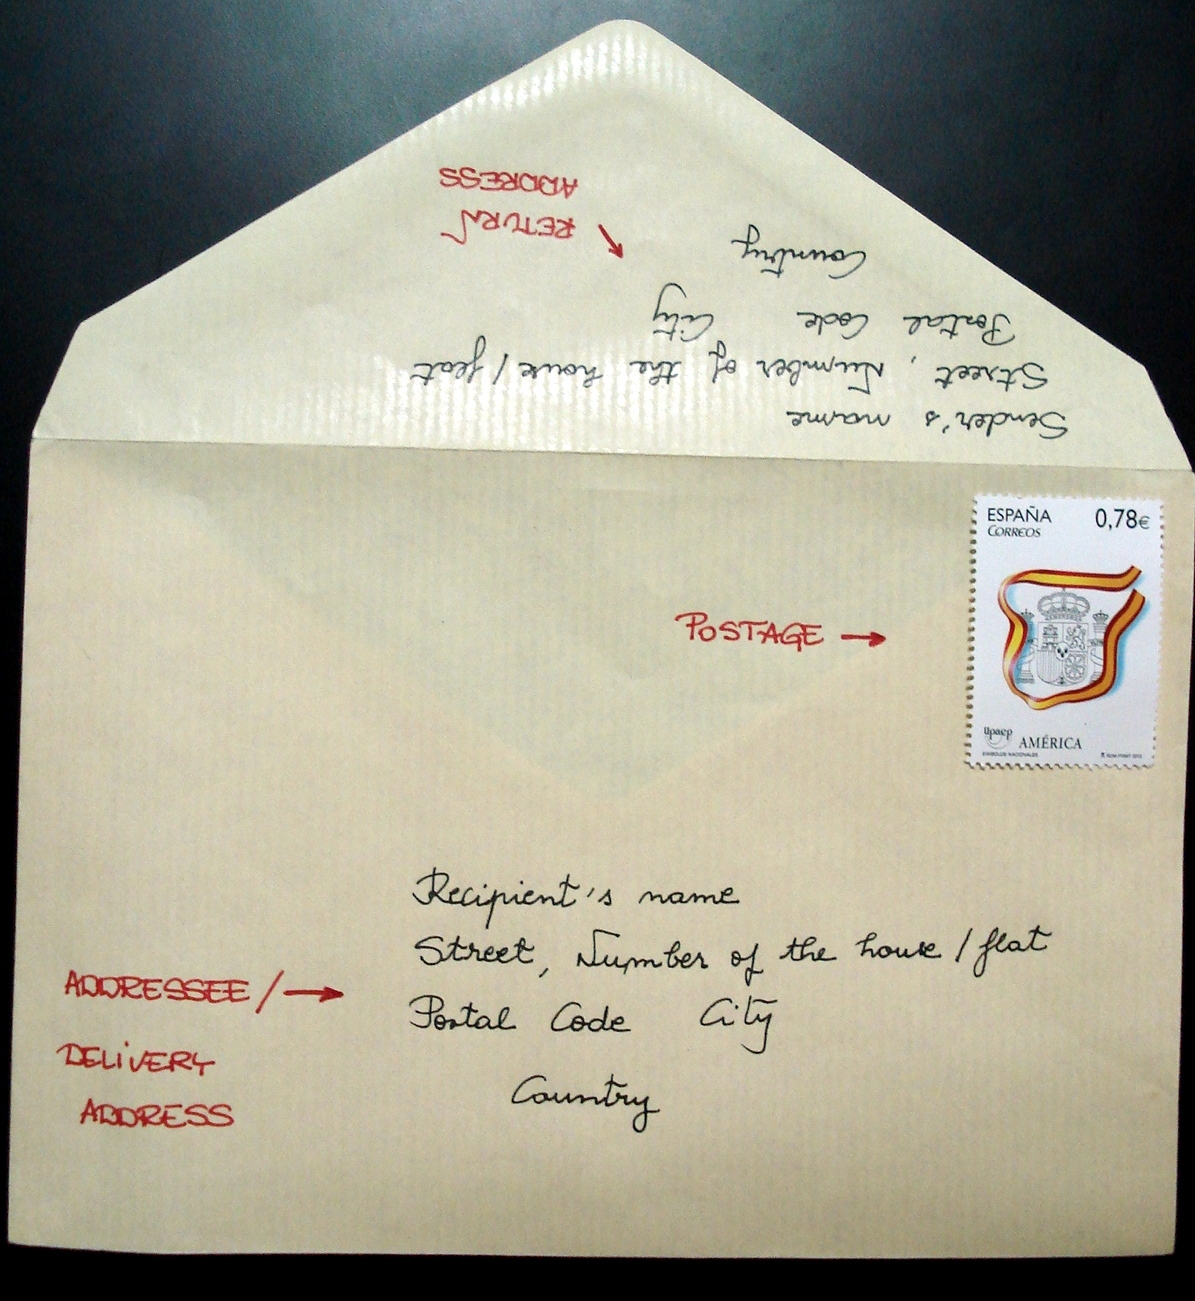 RETURN
ADDRESS
Sender's name
Street, Number of the house / flat
Postal Code City
Country
ESPAÑA 0,78€
CORREOS
POSTAGE
upaep AMÉRICA
SÍMBOLOS NACIONALES
Recipient's name
Street, Number of the house / flat
Postal Code City
Country
ADDRESSEE /
DELIVERY
ADDRESS